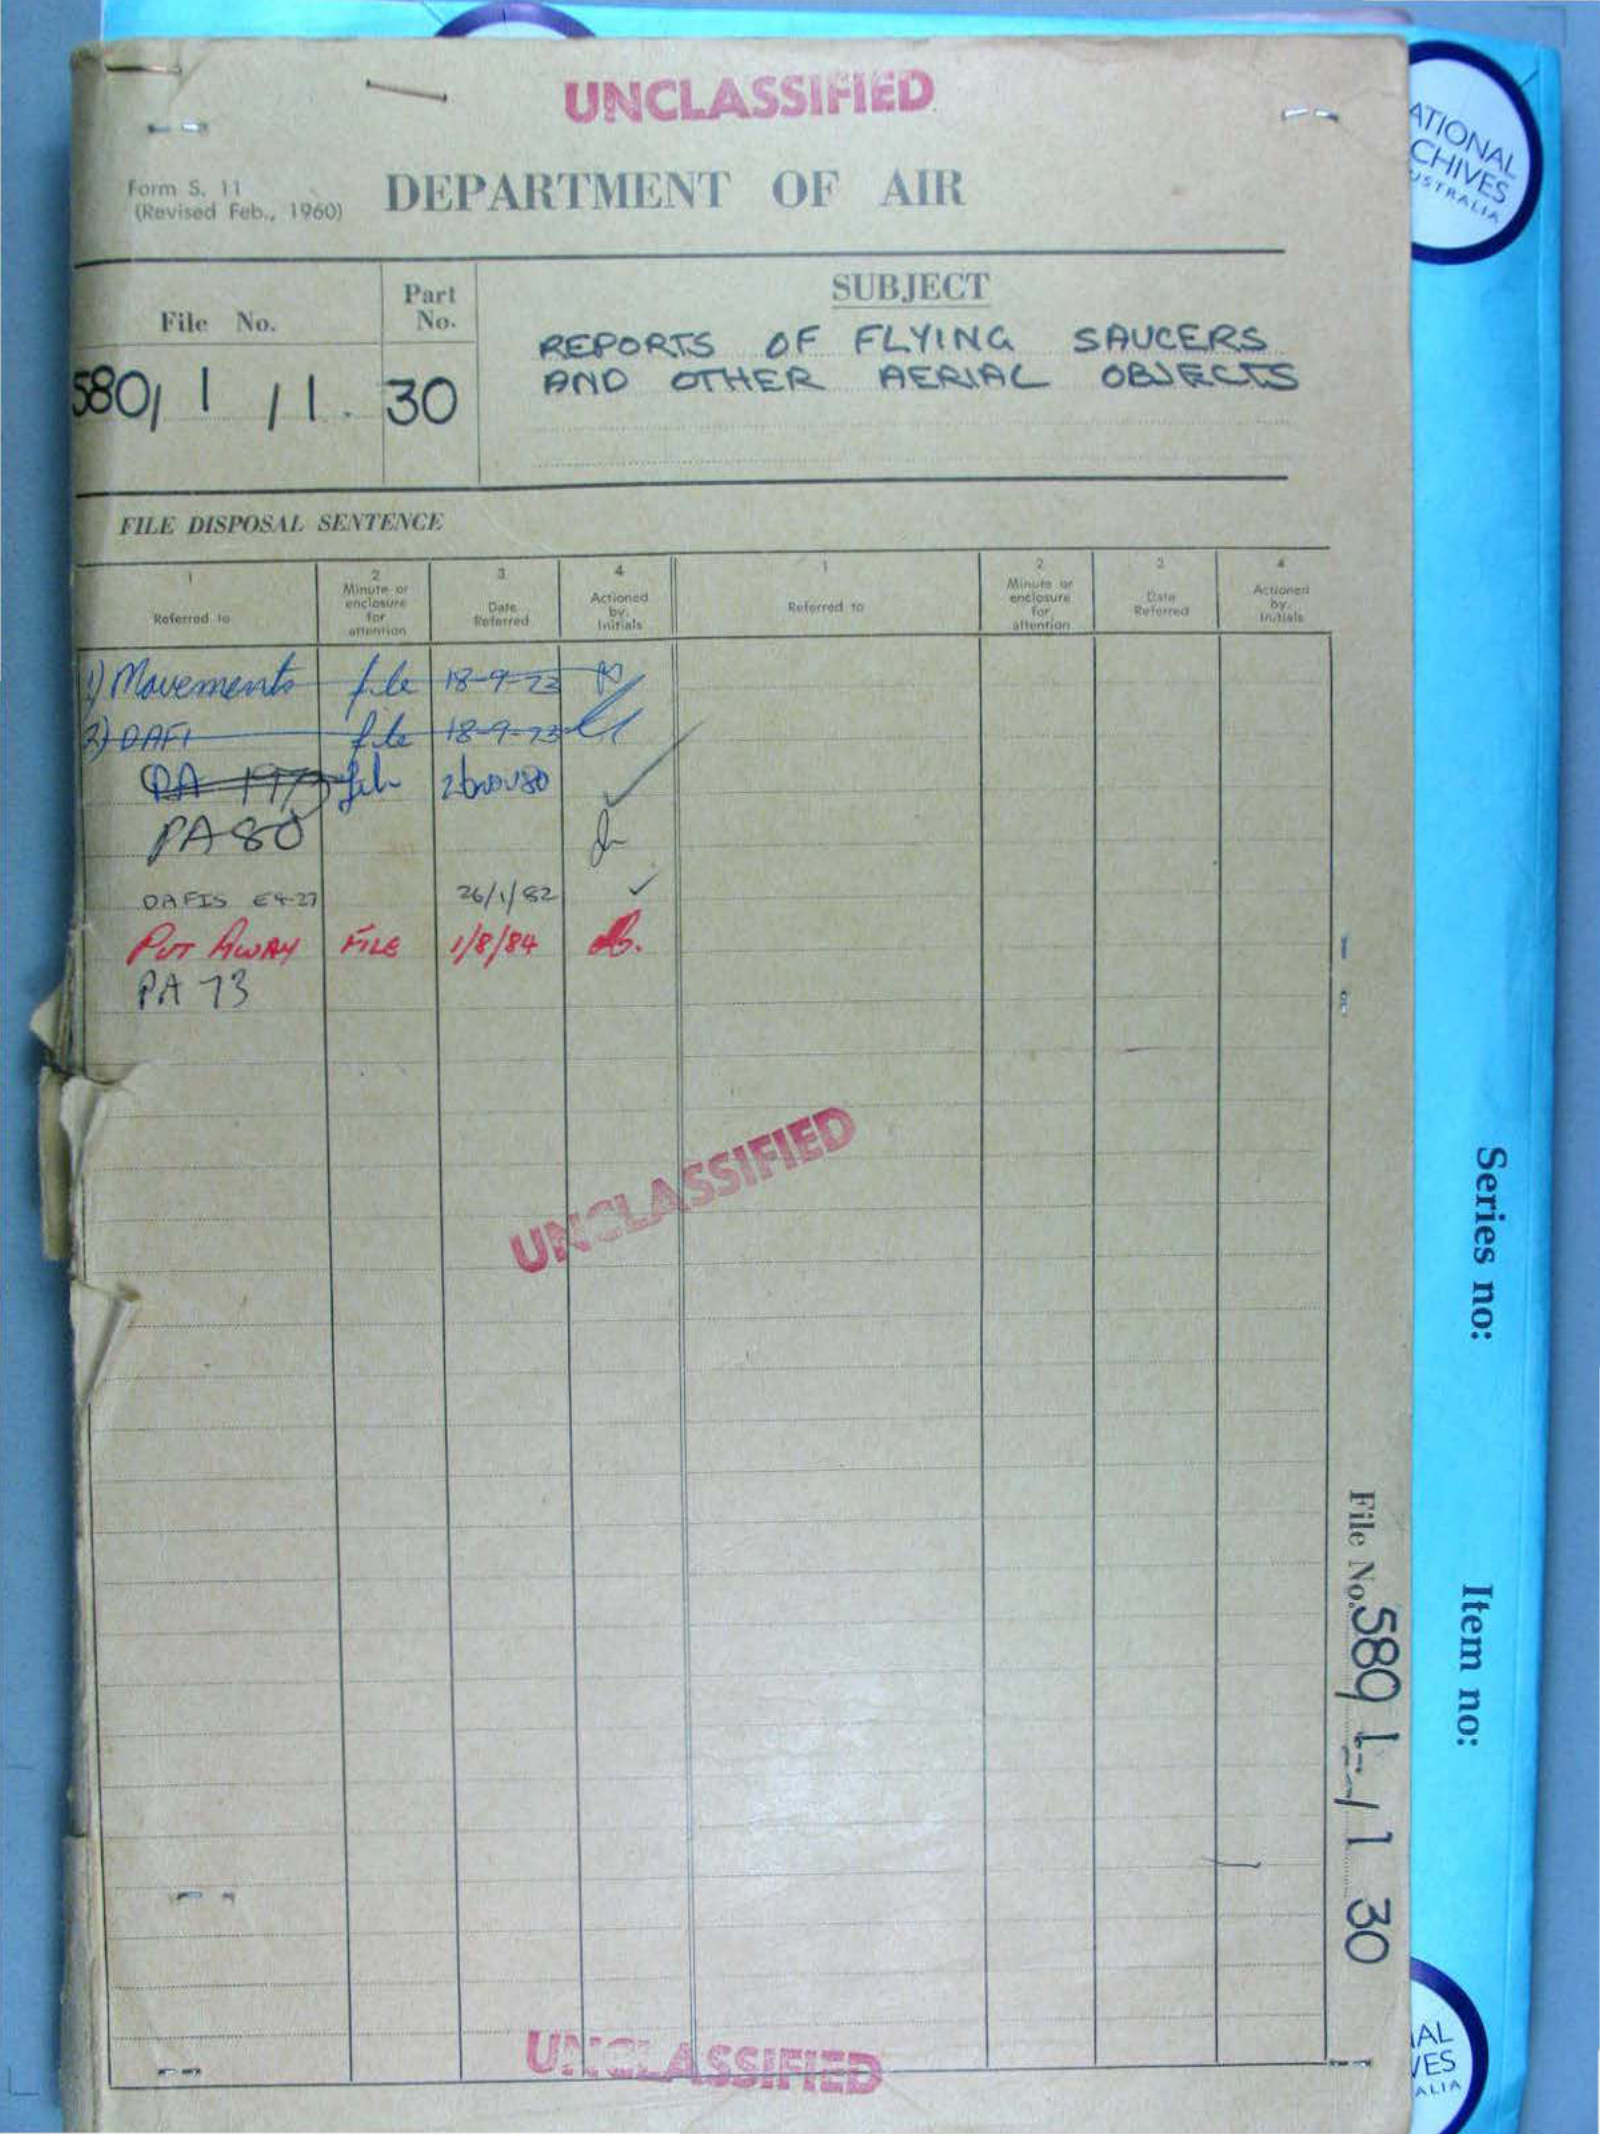 UNCLASSIFIED
ATIONAL
CHIVES
USTRALIA
Form S. 11
(Revised Feb., 1960)
DEPARTMENT OF AIR
File No.
Part
No.
SUBJECT
REPORTS OF FLYING SAUCERS
AND OTHER AERIAL OBJECTS
580/1/1.
30
FILE DISPOSAL SENTENCE
1
Referred to
2
Minute or
enclosure
for
attention
3
Date
Referred
4
Actioned
by.
Initials
1
Referred to
2
Minute or
enclosure
for
attention
3
Date
Referred
4
Actioned
by.
Initials
1) Movements file 18-9-73
2) DAFI file 18-9-73
PA 1973 file 26 NOV 80
PA 80
DAFIS E4-27 26/1/82
PUT AWAY FILE 1/8/84
PA 73
UNCLASSIFIED
Series no:
Item no:
File No. 580/1/1 30
UNCLASSIFIED
NAL
VES
ALIA